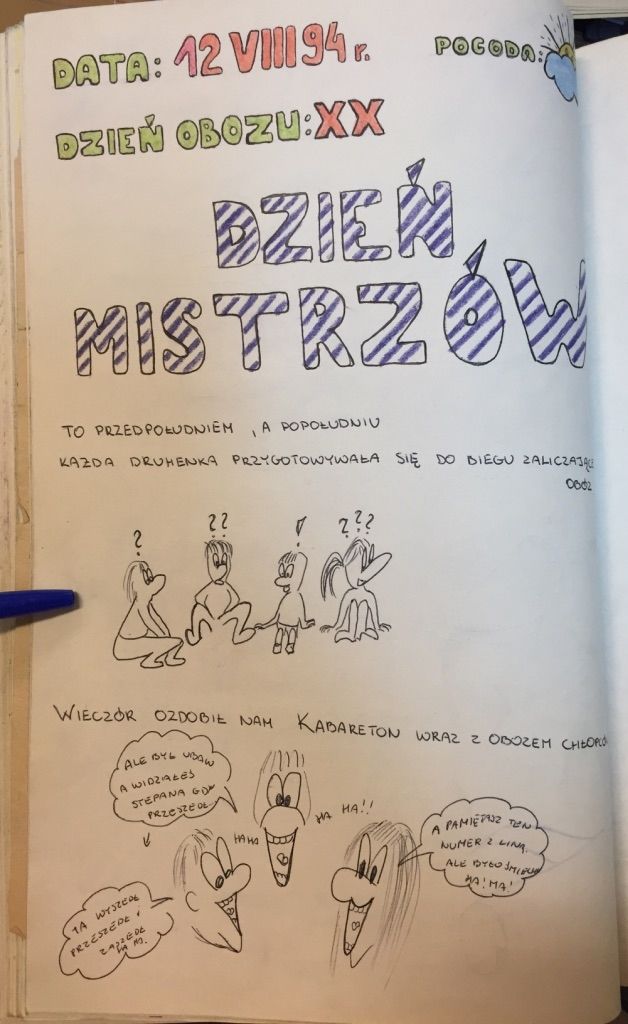 DATA: 12 VIII 94 r.
POGODA:
DZIEŃ OBOZU: XX
DZIEŃ
MISTRZÓW
TO PRZEDPOŁUDNIEM, A POPOŁUDNIU
KAŻDA DRUHENKA PRZYGOTOWYWAŁA SIĘ DO BIEGU ZALICZAJĄCE
OBÓZ
?
??
!
???
WIECZÓR OZDOBIŁ NAM KABARETON WRAZ Z OBOZEM CHŁOPCÓ
ALE BYŁ UBAW
A WIDZIAŁEŚ
STEPANA GDY
PRZESZEDŁ
HA HA
HA HA!!
A PAMIĘTASZ TEN
NUMER Z LINĄ.
ALE BYŁO ŚMIECHU
HA! HA!
TA WYSZEDŁ
PRZESZEDŁ I
ZASZEDŁ
HA HA.